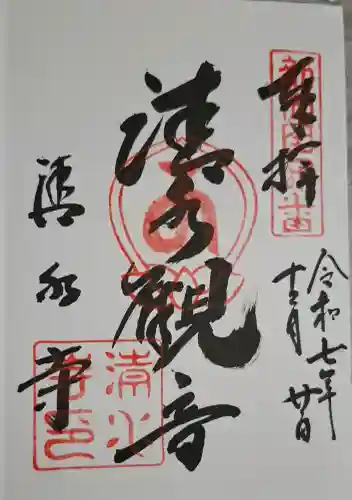 奉拝
令和七年
十二月廿日
清水觀音
清水寺
清水
寺印